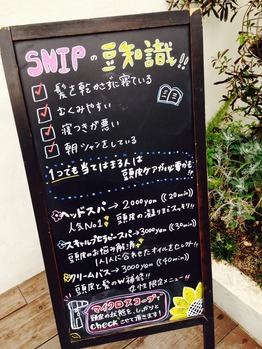 SNIPの豆知識!!
髪を乾かさずに寝ている
むくみやすい
寝つきが悪い
朝シャンをしている
1つでも当てはまる人は
頭皮ケアが必要かも!!
ヘッドスパ→2000yen ((20min))
人気No.1 頭皮の深りまでスッキリ!!
スキャルプセラピースパ→3000yen((30min))
頭皮のお悩み解消
1人1人に合わせたオイルをセレクト!!
クリームバス→3000yen ((40min))
頭皮と髪のW補修!!
女性限定メニュー
マイクロスコープで
頭皮の状態を、しっかりと
checkさせて頂きます!